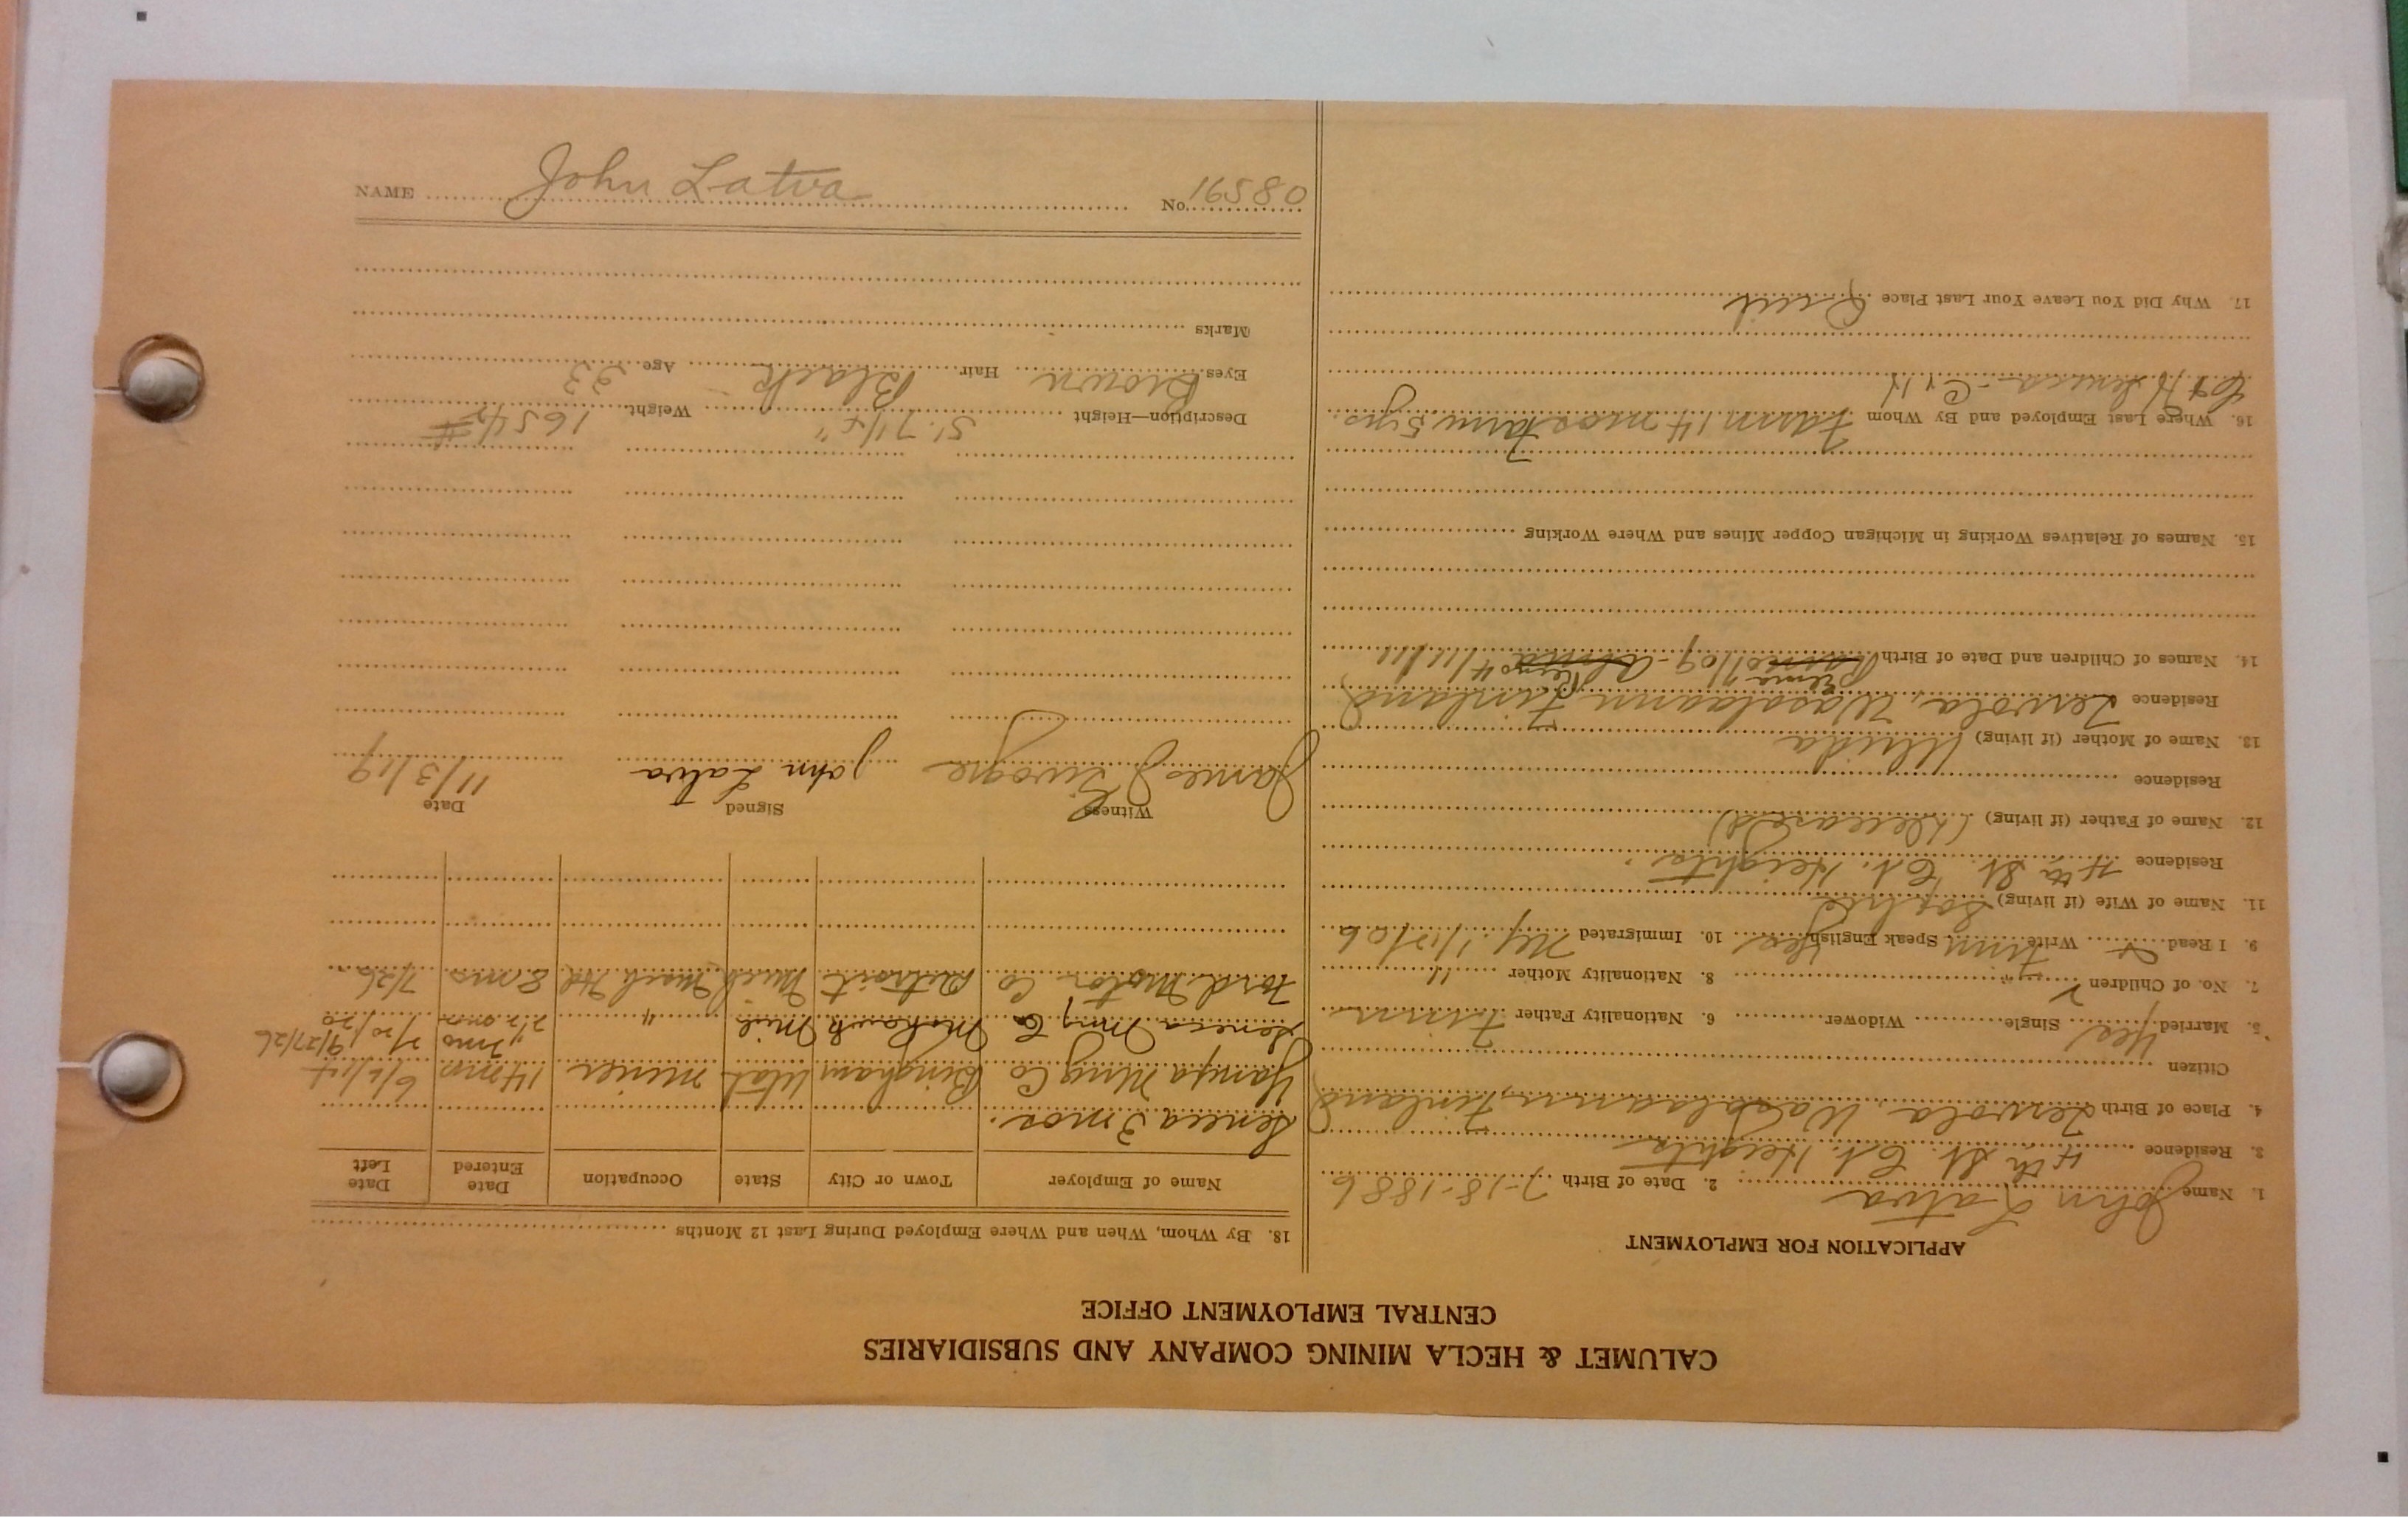 CALUMET & HECLA MINING COMPANY AND SUBSIDIARIES
CENTRAL EMPLOYMENT OFFICE
APPLICATION FOR EMPLOYMENT
1. Name John Latva 2. Date of Birth 7-18-1886
3. Residence 4th St. Cl. Heights
4. Place of Birth Zervola, Wasalaann, Finland
Citizen
5. Married Yes Single Widower 6. Nationality Father Finn
7. No. of Children 2 8. Nationality Mother "
9. I Read & Write Finn Speak English Yes 10. Immigrated Ny. 1/12/06
11. Name of Wife (if living) Sophie
Residence 4th St. Cl. Heights.
12. Name of Father (if living) (deceased)
Residence
13. Name of Mother (if living)
Residence Zervola, Wasalaann Finland
14. Names of Children and Date of Birth 7/09 - 4/11/11
15. Names of Relatives Working in Michigan Copper Mines and Where Working
16. Where Last Employed and By Whom Farm 14 mos Farm 5 yrs.
C & H Seneca - C & H
17. Why Did You Leave Your Last Place Quit
18. By Whom, When and Where Employed During Last 12 Months
Name of Employer Town or City State Occupation Date Entered Date Left
Seneca 3 mos.
Yampa Mng Co Bingham Utah miner 14 mos 6/6/14
Seneca Mng Co Mohawk Mich " 7/20/20 9/27/26
Ford Motor Co Detroit Mich Mach Hd 8 mos 7/26
Witness Signed Date
James John Latva 11/3/19
Description—Height 5' 7 1/4" Weight 165 1/2 #
Eyes Brown Hair Black Age 33
Marks
NAME John Latva No. 16580